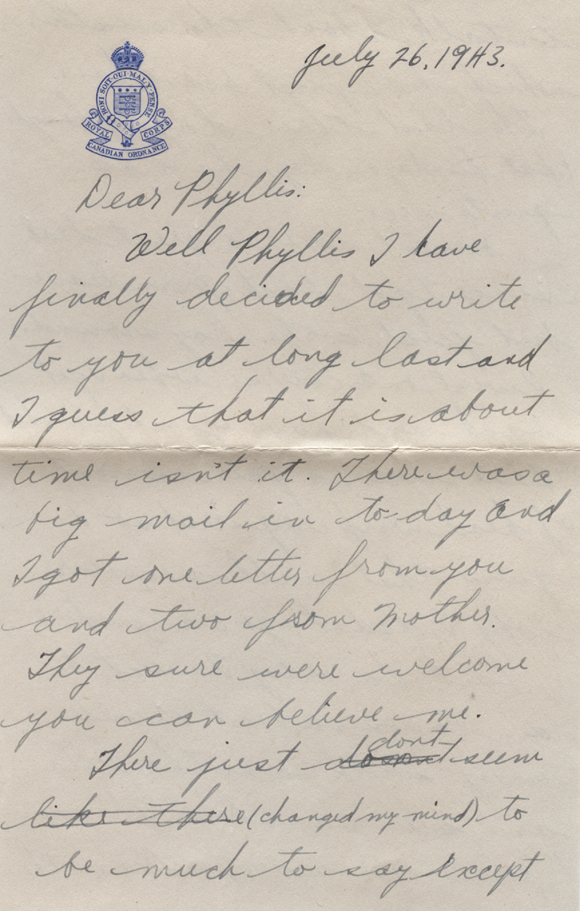 July 26, 1943.
HONI·SOIT·QUI·MAL·Y·PENSE
ROYAL CORPS
CANADIAN ORDNANCE
Dear Phyllis:
Well Phyllis I have
finally decided to write
to you at long last and
I guess that it is about
time isn't it. There was a
big mail in to-day and
I got one letter from you
and two from Mother.
They sure were welcome
you can believe me.
There just don't seem
like there (changed my mind) to
be much to say except